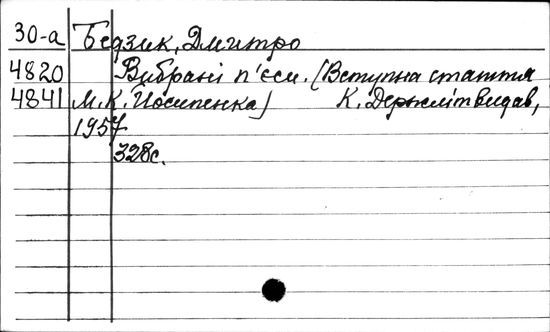 30-а Бедзик, Дмитро
4820 Вибрані п'єси. (Вступна стаття
4841 М.К. Йосипенка) К. Держлітвидав,
1957
328с.